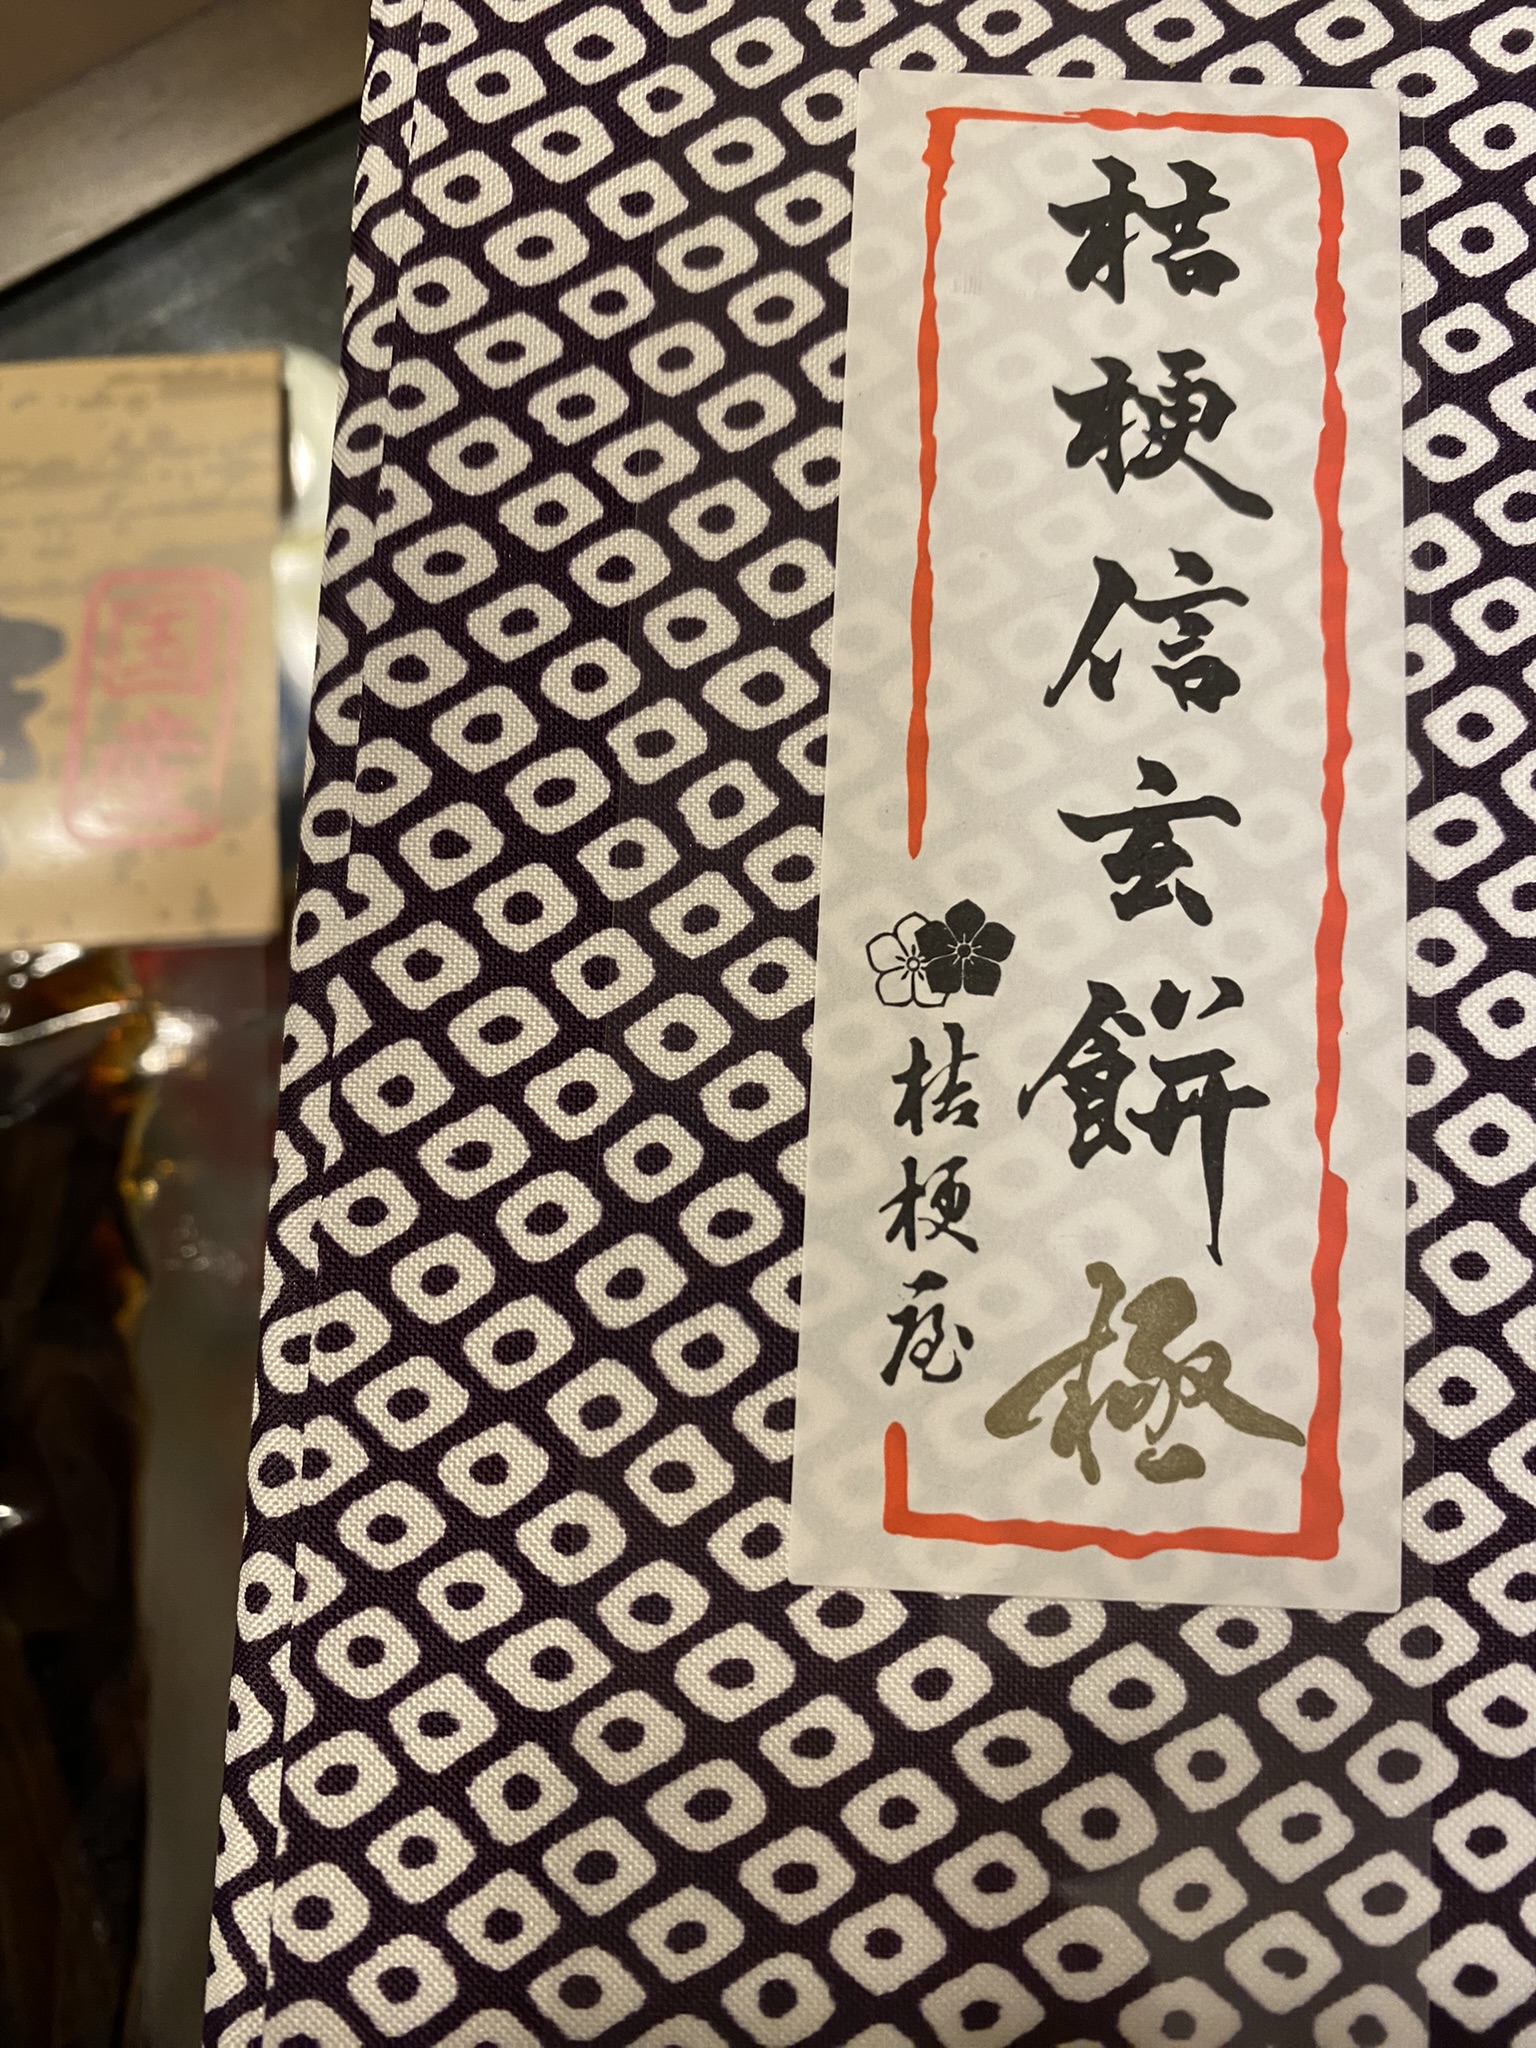 桔梗信玄餅 極
桔梗屋
国産